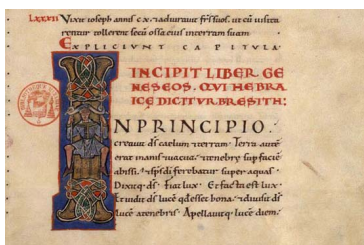 LXXXII Vixit ioseph annis cx. adiuravit fr̄s suos. ut cū visita
rentur tollerent secū ossa eius in terram suam
EXPLICIUNT CAPITULA
INCIPIT LIBER GE
NESEOS. QVI HEBRA
ICE DICITVR BRESITH:
IN PRINCIPIO.
creavit d̄s caelum et terram. Terra autē
erat inanis et vacua. et tenebrę sup faciē
abissi. et sp̄s d̄i ferebatur super aquas.
Dixitq; d̄s. Fiat lux. Et facta est lux.
Et vidit d̄s lucē qđ esset bona. et divisit d̄s
lucē a tenebris. Appellavitq; lucē diem.